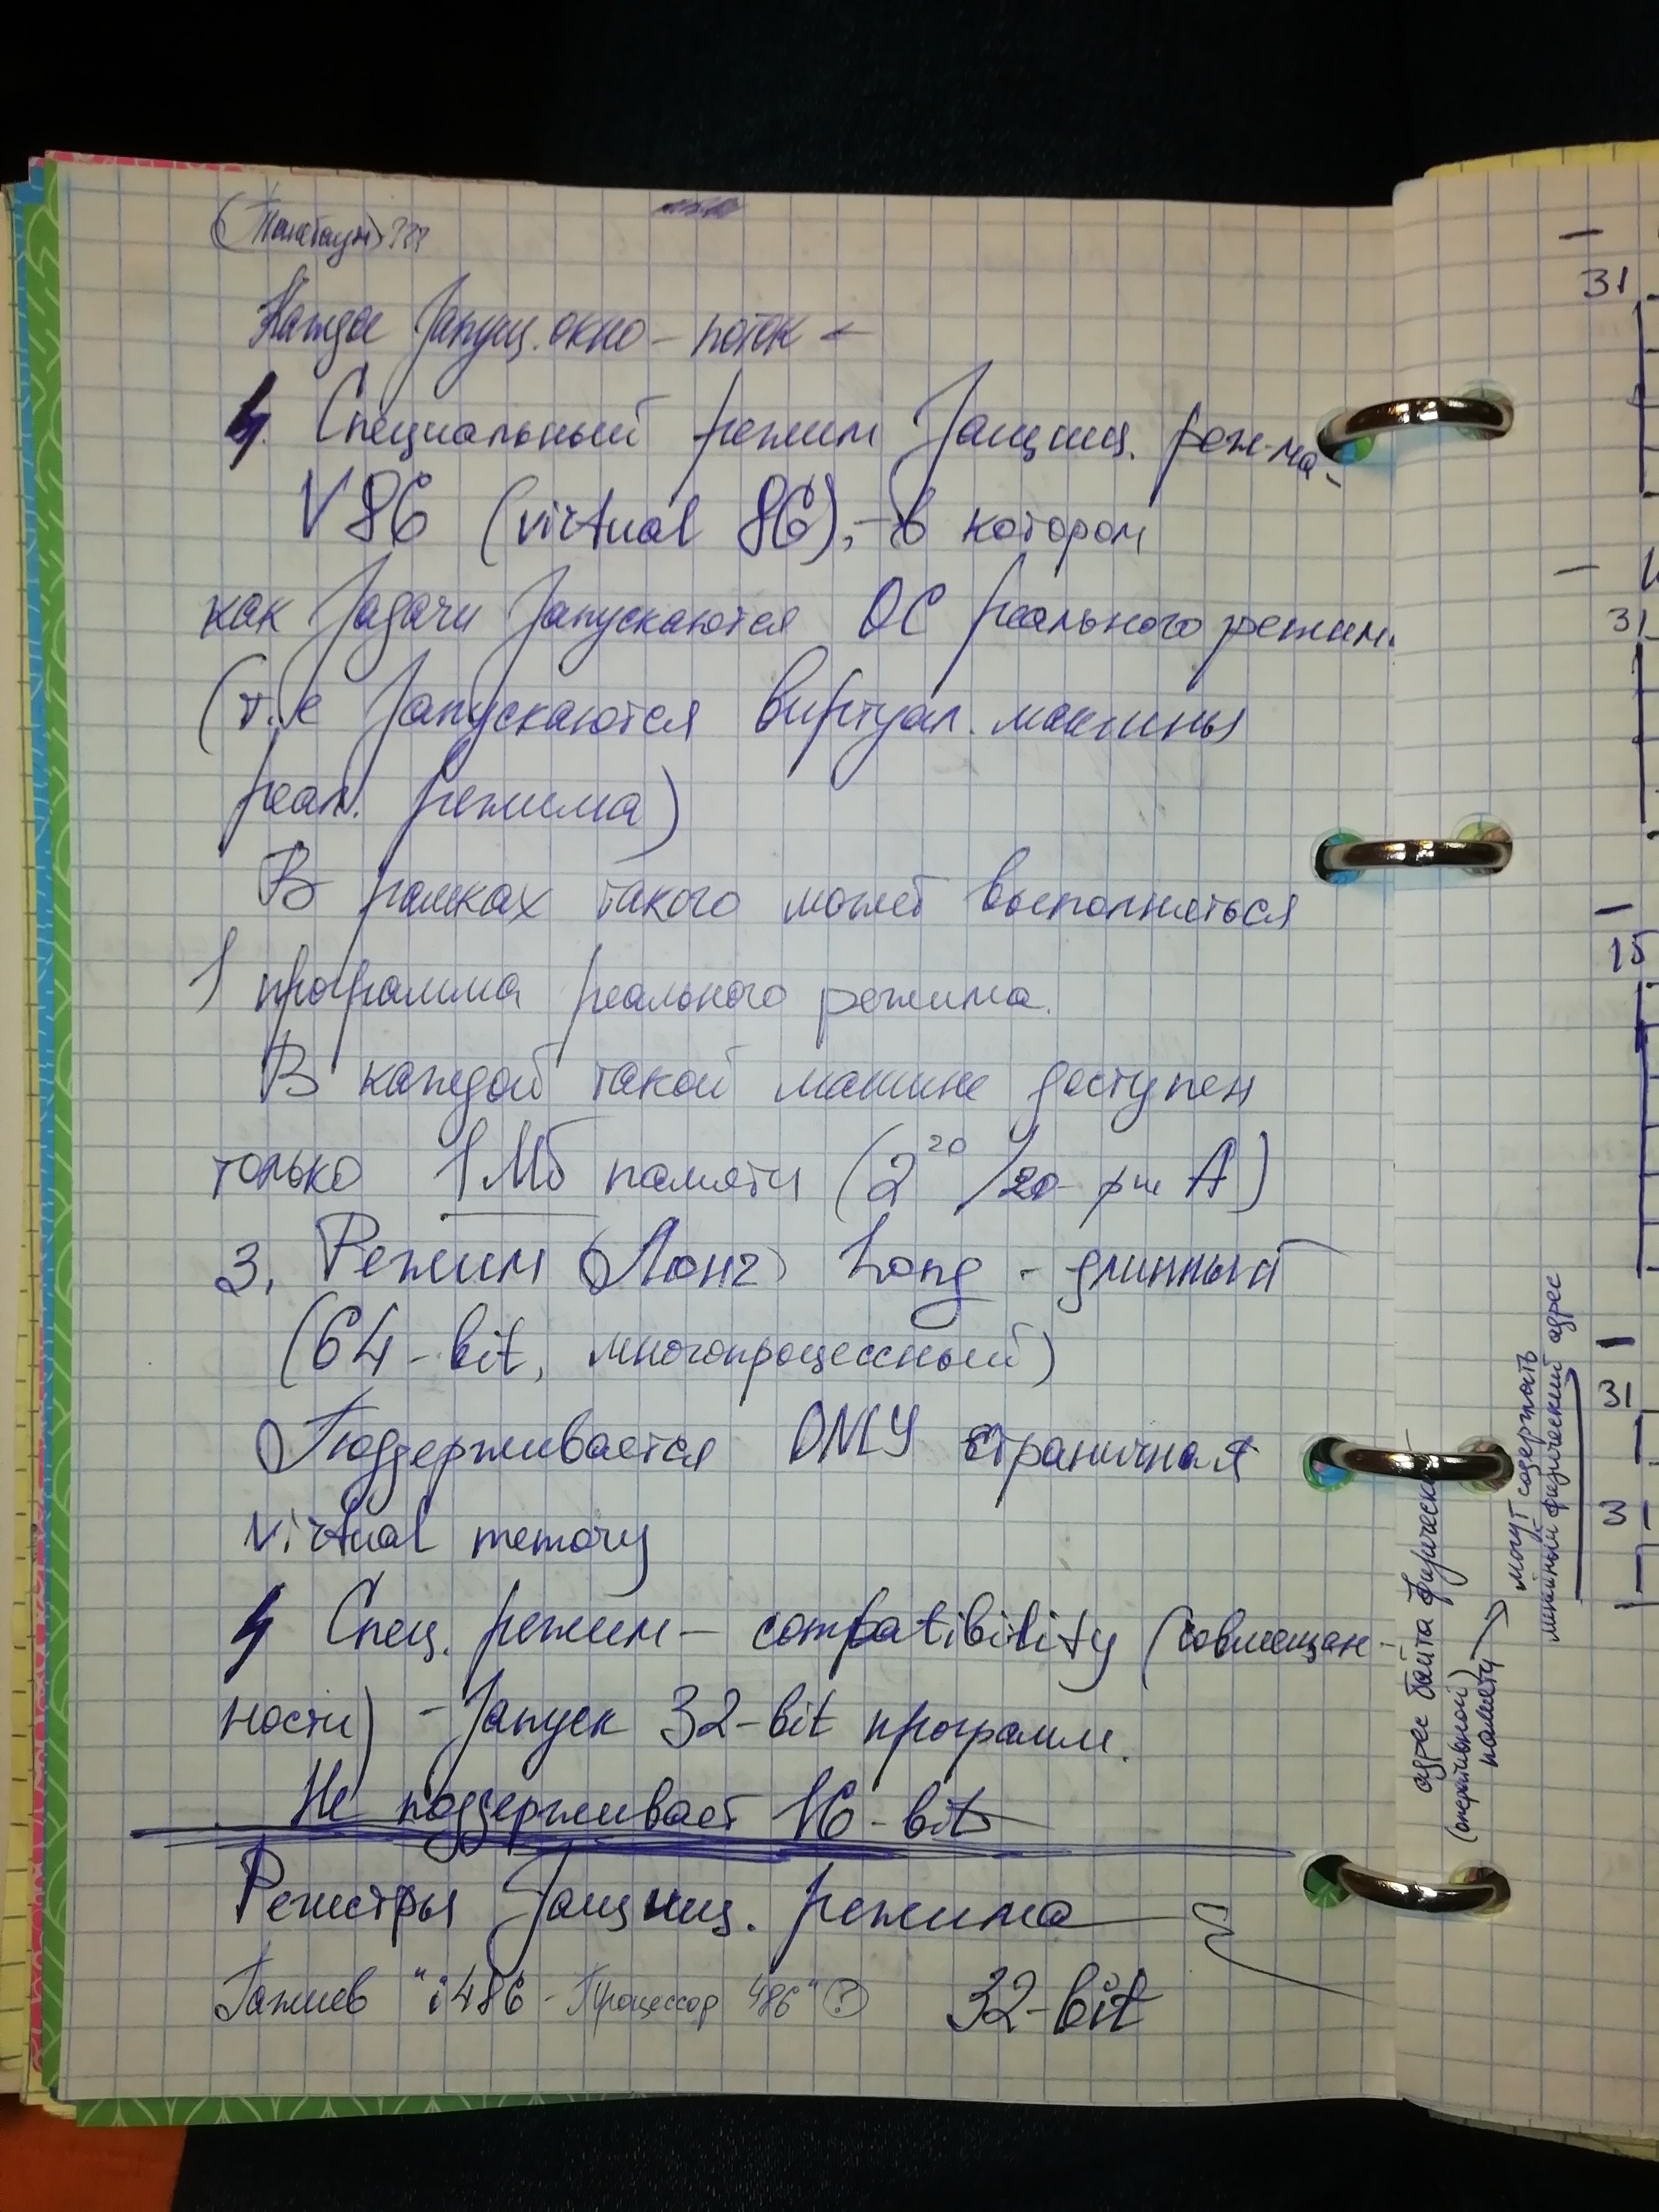 Каждое запущ. окно – поток –
↳ Специальный режим защищ. реж-ма -
V86 (virtual 86), - в котором
как задачи запускаются ОС реального режим.
(т.е запускаются виртуал. машины
реал. режима)
В рамках такого может выполняться
1 программа реального режима.
В каждой такой машине доступен
только 1 Мб памяти (2²⁰ /20 рш А)
3. Режим (Лонг) Long - длинный
(64-bit, многопроцессный)
Поддерживается ONLY страничная
virtual memory
↳ Спец. режим – compatibility (совмещен-
ности) - запуск 32-bit программ.
Не поддерживает 16-bit
Регистры защищ. режима
"i486 - Процессор 486" (?) 32-bit
адрес байта физической
(оперативной)
памяти →
могут содержать
линейный физический адрес
31
31
15
31
31